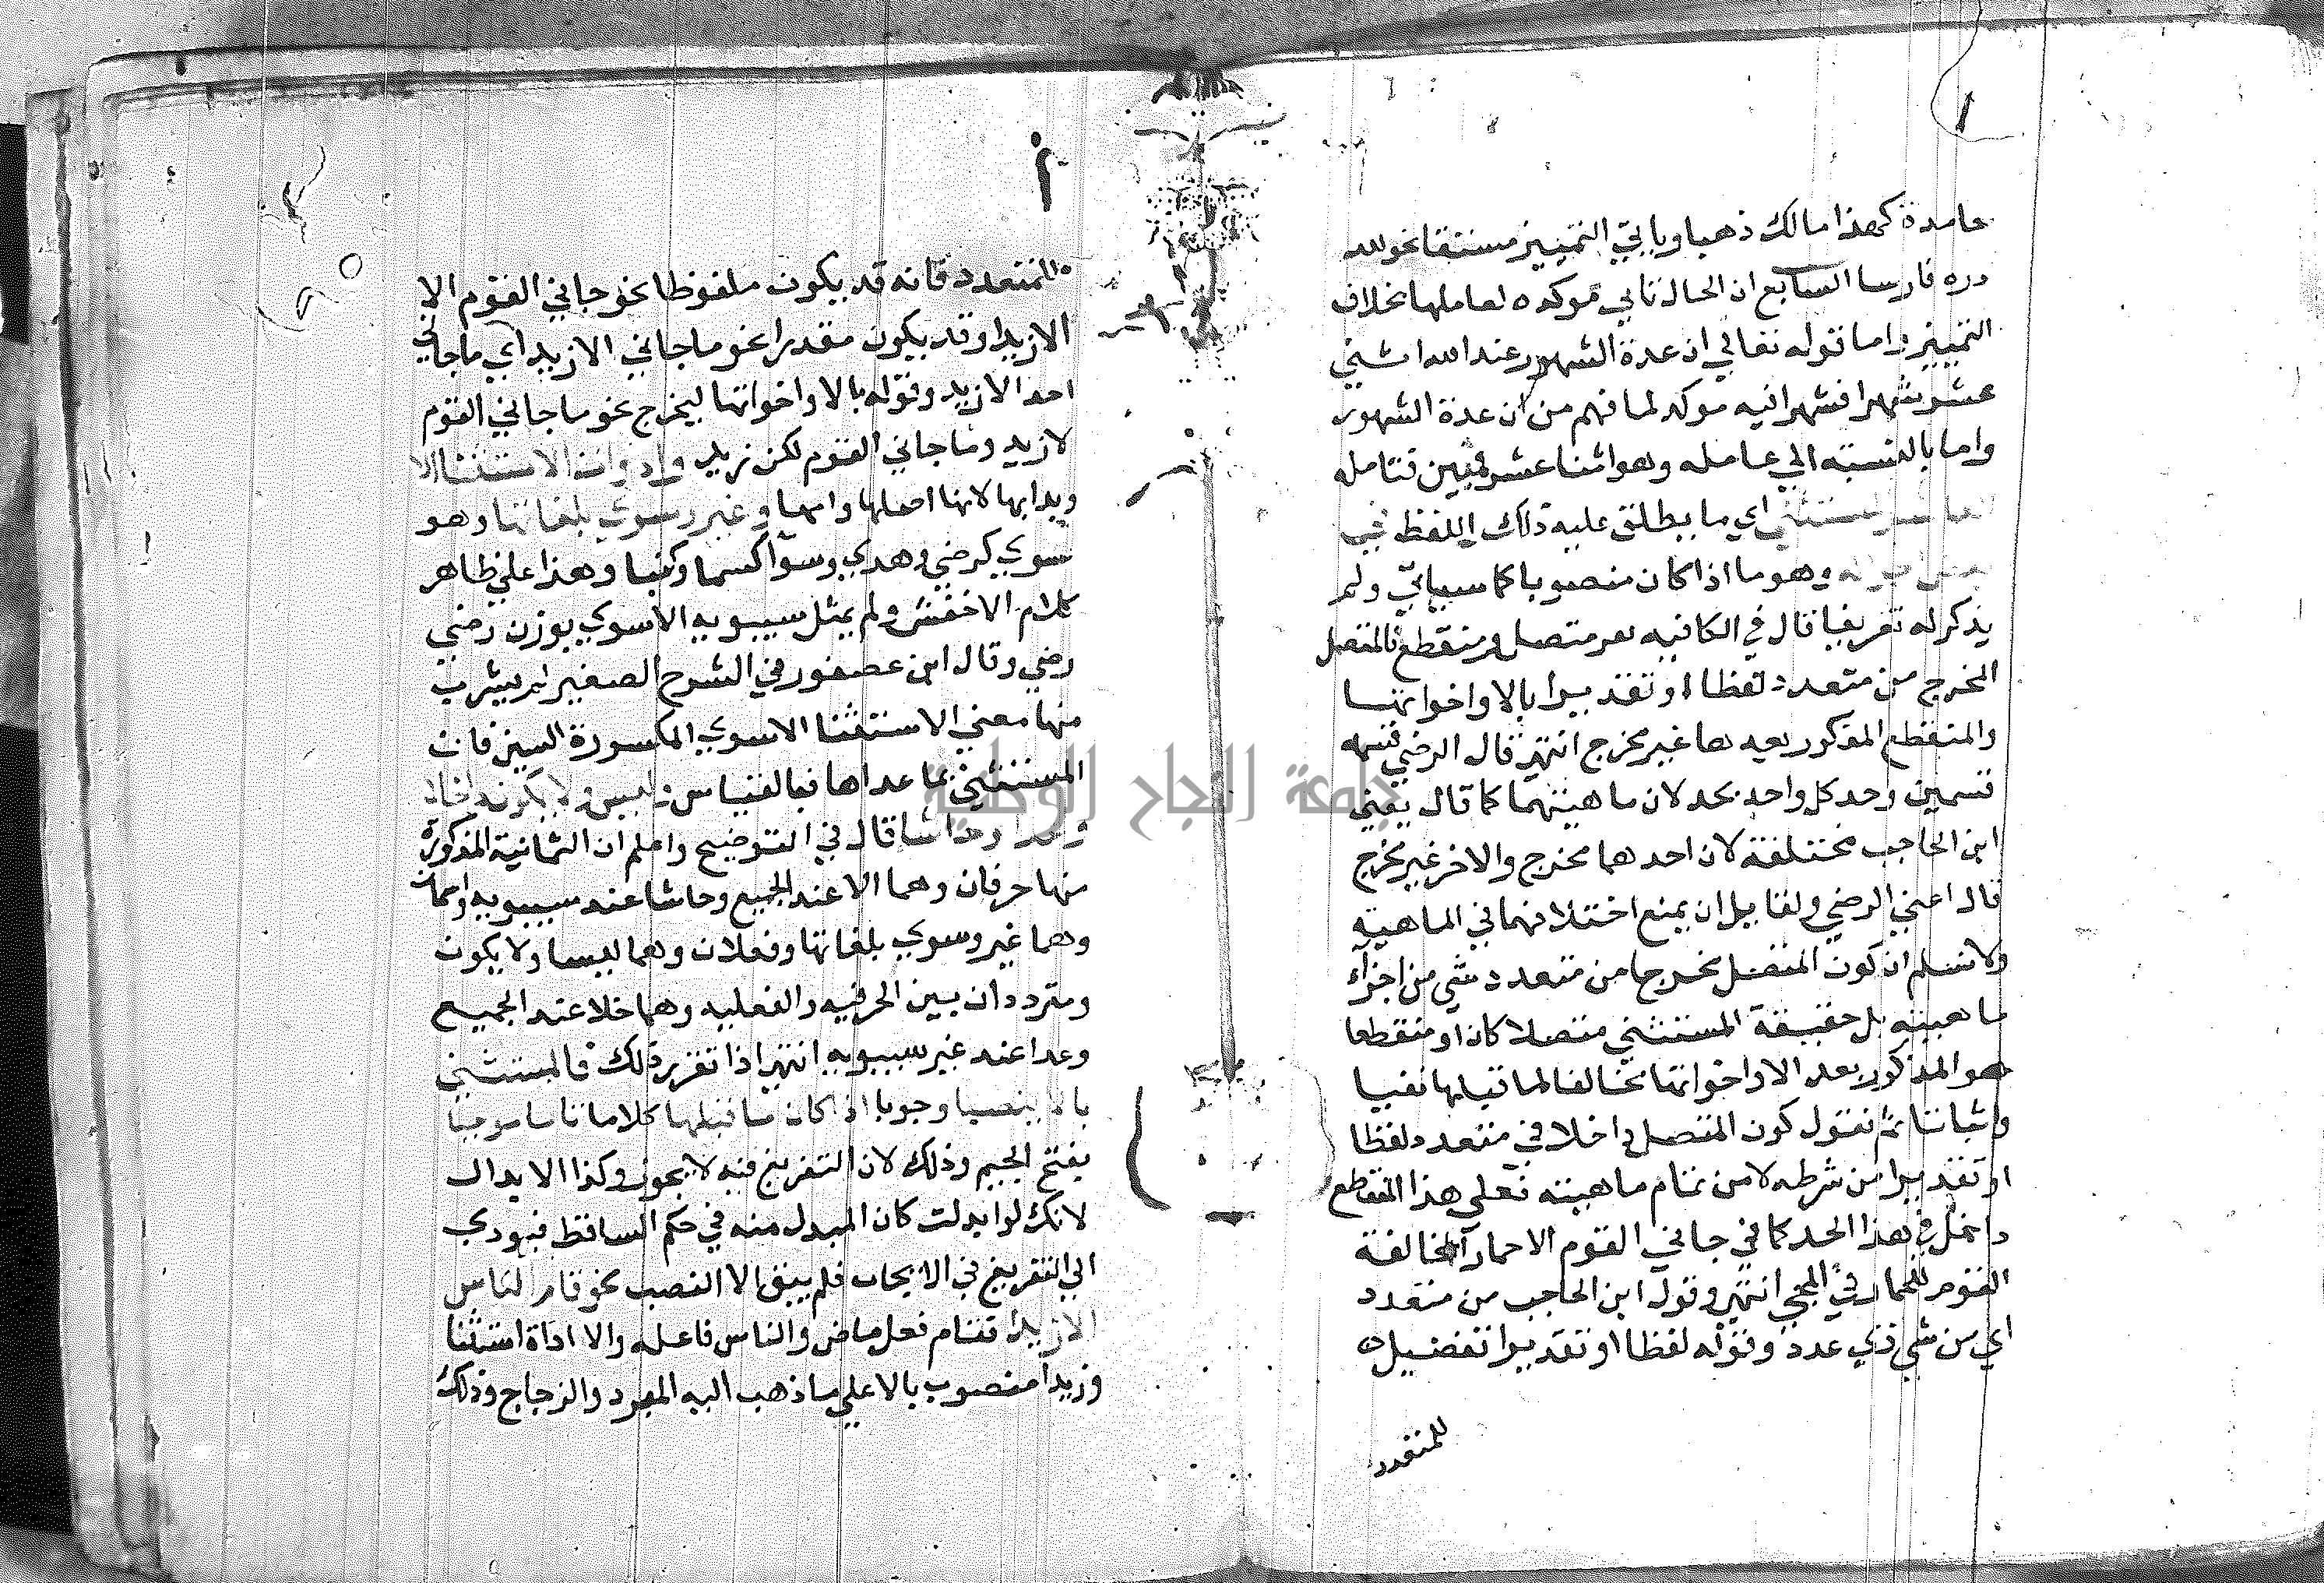 جامدة كهذا مالك ذهبا ويأتي التمييز مشتقا نحو لله
دره فارسا السابع ان الحال تاتي موكده لعاملها بخلاف
التمييز واما قوله تعالي ان عدة الشهور عند الله اثني
عشر شهرا فشهرا فيه موكد لما فهم من ان عدة الشهور
واما بالنسبته الي عامله وهو اثنا عشر فمبين فتامله
المستثني اي ما يطلق عليه ذلك اللفظ في
وهو ما اذا كان منصوبا كما سياتي ولم
يذكر له تعريفا قال في الكافيه هو متصل ومنقطع فالمتصل
المخرج من متعدد لفظا او تقديرا بالا واخواتها
والمنقطع المذكور بعيه ها غير مخرج انتهى قال الرضي قسمه
قسمين وحد كل واحد بحد لان ماهيتهما كما قال يعني
ابن الحاجب مختلفة لان احدهما مخرج والاخر غير مخرج
قال اعني الرضي ولقايل ان يمنع اختلافهما في الماهيته
ولا نسلم ان كون المتصل مخرجا من متعدد شي من اجزآء
ماهيته بل حقيقة المستثني متصلا كان او منقطعا
هو المذكور بعد الا واخواتها مخالفا لما قبلها نفيا
واثباتا ثم نقول كون المتصل داخلا في متعدد لفظا
او تقديرا من شرطه لا من تمام ماهيته فعلي هذا المنقطع
داخل في هذا الحد كما في جاني القوم الا حمارا لمخالفة
القوم للحمار في المجي انتهي وقول ابن الحاجب من متعدد
اي من شي ذي عدد وقوله لفظا او تقديرا تفصيل
للمتعدد
للمتعدد فانه قد يكون ملفوظا نحو جاني القوم الا
الا زيدا وقد يكون مقدرا نحو ما جاني الا زيد اي ما جاني
احد الا زيد وقوله بالا واخواتها ليخرج نحو ما جاني القوم
لا زيد وما جاني القوم لكن زيد وادوات الاستثنا الا
وبدا بها لانها اصلها واسما وغير وسوي بلغاتها وهو
سوي كرضي وهدي وسوآ كسما وكبنا وهذا علي ظاهر
كلام الاخفش ولم يمثل سيبويه الا سوي بوزن رضي
رضي وقال ابن عصفور في الشرح الصغير لم يشرب
منها معني الاستثنا الا سوي المكسورة السين فان
المستثني بما عداها فبالقياس وليس ولا يكون وخلا
وعدا وحاشا قال في التوضيح واعلم ان الثمانية المذكورة
منها حرفان وهما الا عند الجميع وحاشا عند سيبويه واسمان
وهما غير وسوي بلغاتها وفعلان وهما ليس ولا يكون
ومترددان بين الحرفيه والفعليه وهما خلا عند الجميع
وعدا عند غير سيبويه انتهي اذا تقرر ذلك فالمستثني
بالا ينصب وجوبا اذا كان ما قبلها كلاما تاما موجبا
بفتح الجيم وذلك لان التفريغ فيه لا يجوز وكذا الابدال
لانك لو ابدلت كان المبدل منه في حكم الساقط فيودي
الي التفريغ في الايجاب فلم يبق الا النصب نحو قام الناس
الا زيدا فقام فعل ماض والناس فاعله والا اداة استثنا
وزيدا منصوب بالا علي ما ذهب اليه المبرد والزجاج وذلك
جامعة النجاح الوطنية